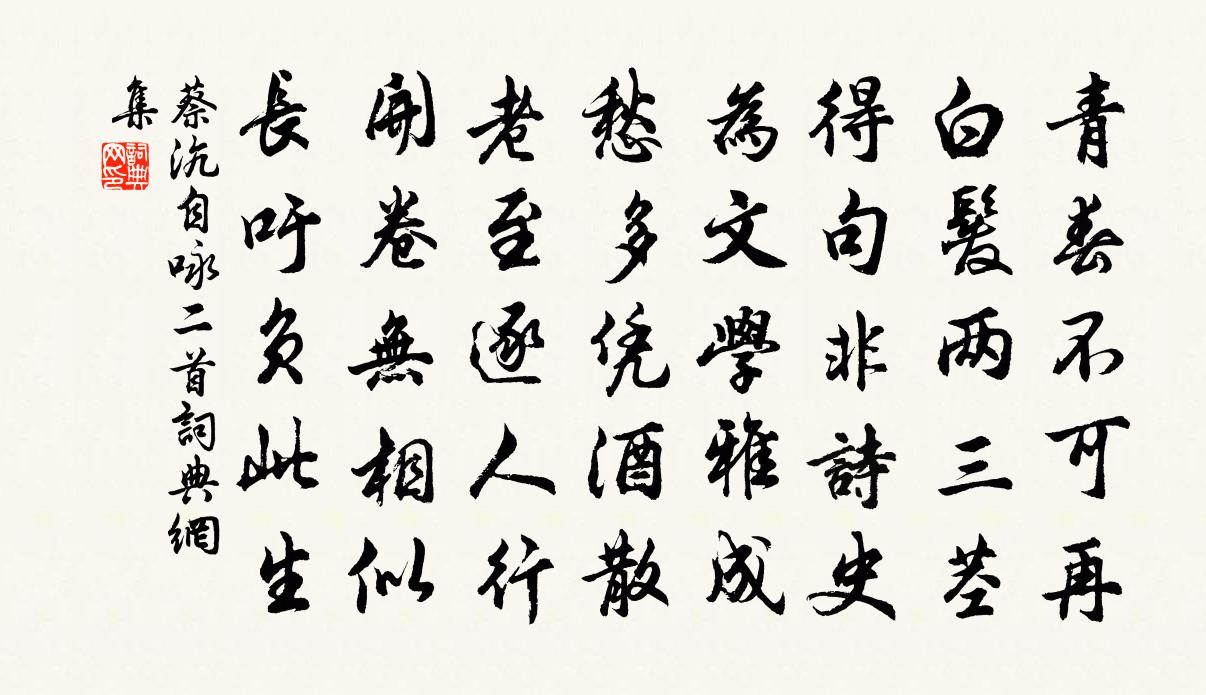 青春不可再
白髮两三莖
得句非詩史
為文學雅成
愁多凭酒散
老至逐人行
開卷無相似
長吁負此生
蔡沉自咏二首詞典網
集
詞典網印